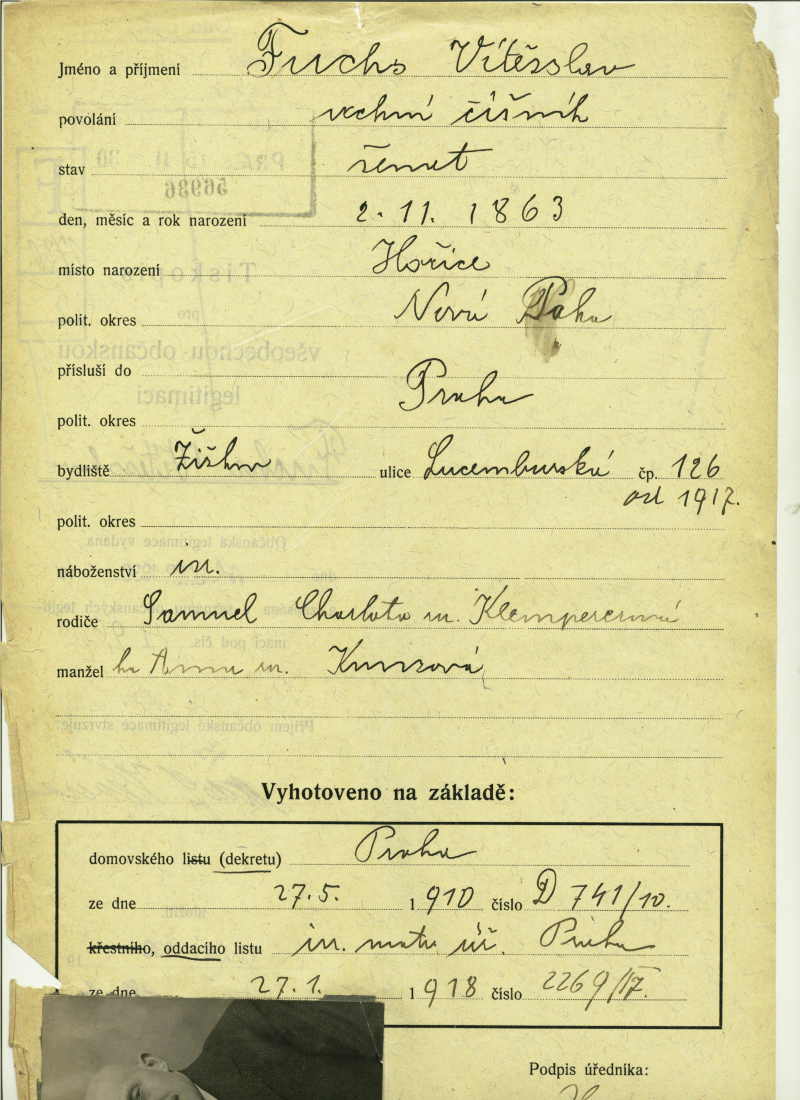 Jméno a příjmení Fuchs Vítězslav
povolání vrchní číšník
stav ženat
den, měsíc a rok narození 2. 11. 1863
místo narození Hořice
polit. okres Nová Paka
přísluší do
Praha
polit. okres
bydliště Žižkov ulice Lucemburská čp. 126
od 1917.
polit. okres
náboženství isr.
rodiče Samuel Charlota r. Klempererová
manžel ka Anna r.
Vyhotoveno na základě:
domovského listu (dekretu) Praha
ze dne 27. 5. 1 910 číslo D 741/10.
křestního, oddacího listu isr. matr. úř. Praha
ze dne 27. 1. 1 918 číslo 2269/IV.
Podpis úředníka: